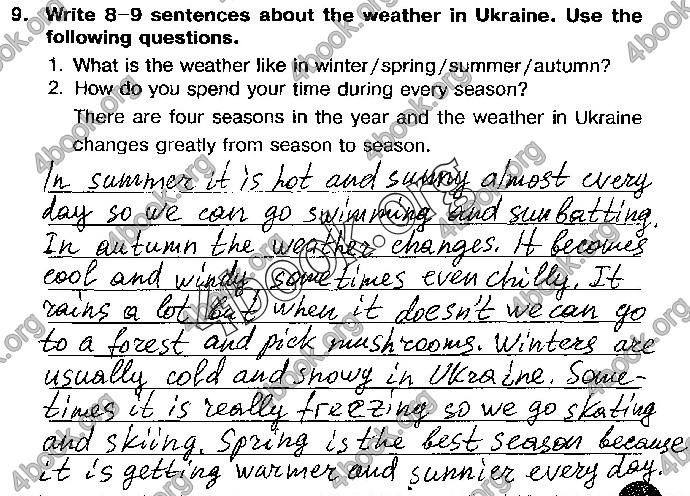 9. Write 8–9 sentences about the weather in Ukraine. Use the
following questions.
1. What is the weather like in winter/spring/summer/autumn?
2. How do you spend your time during every season?
There are four seasons in the year and the weather in Ukraine
changes greatly from season to season.
In summer it is hot and sunny almost every
day so we can go swimming and sunbatting.
In autumn the weather changes. It becomes
cool and windy sometimes even chilly. It
rains a lot but when it doesn't we can go
to a forest and pick mushrooms. Winters are
usually cold and snowy in Ukraine. Some-
times it is really freezing so we go skating
and skiing. Spring is the best season because
it is getting warmer and sunnier every day.
4book.org